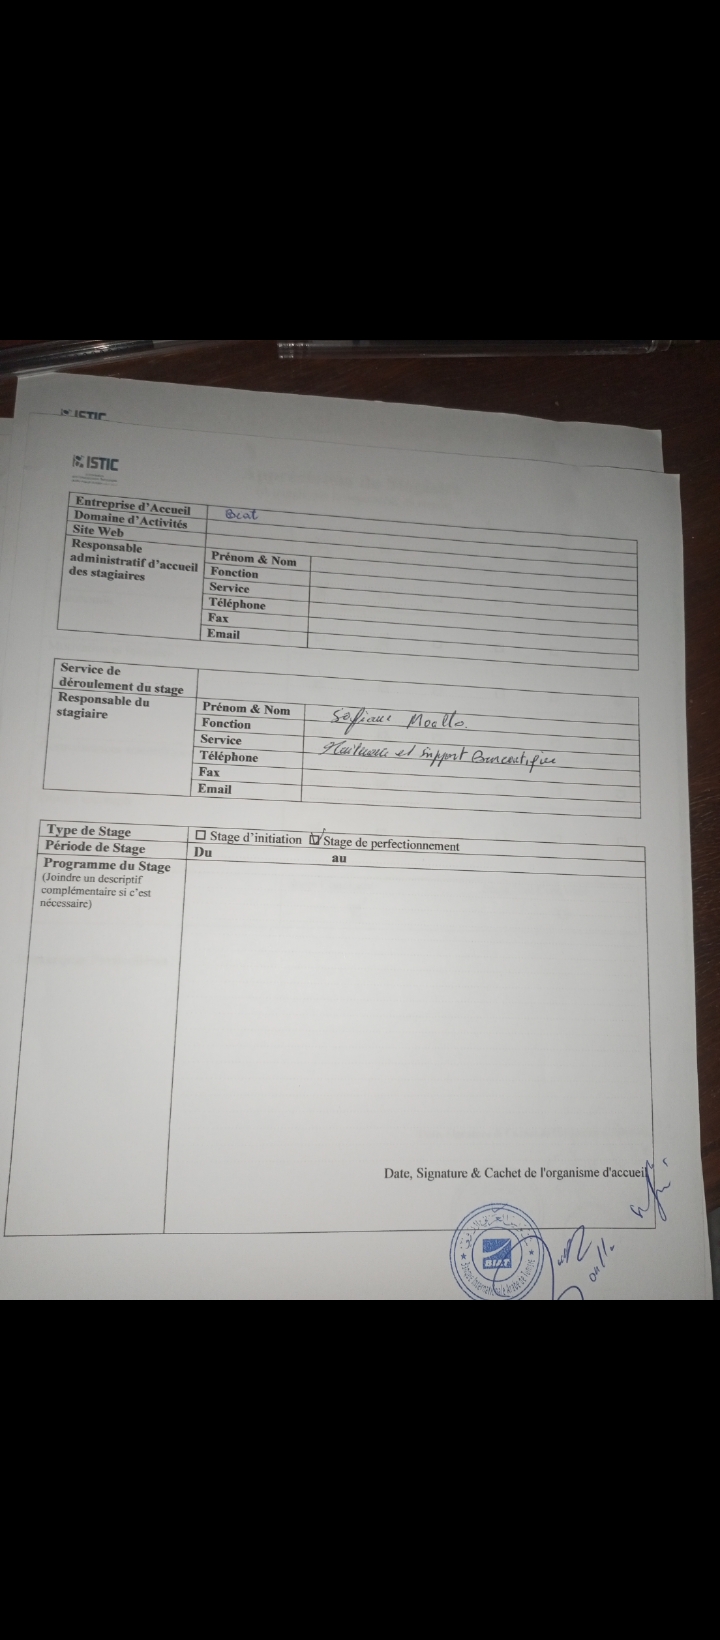 ISTIC
ISTIC
Entreprise d'Accueil Biat
Domaine d'Activités
Site Web
Responsable administratif d'accueil des stagiaires
Prénom & Nom
Fonction
Service
Téléphone
Fax
Email
Service de déroulement du stage
Responsable du stagiaire
Prénom & Nom Sofiane
Fonction
Service et support Bureautique
Téléphone
Fax
Email
Type de Stage Stage d'initiation Stage de perfectionnement
Période de Stage Du au
Programme du Stage
(Joindre un descriptif
complémentaire si c'est
nécessaire)
Date, Signature & Cachet de l'organisme d'accueil
BIAT
Banque Internationale Arabe de Tunisie